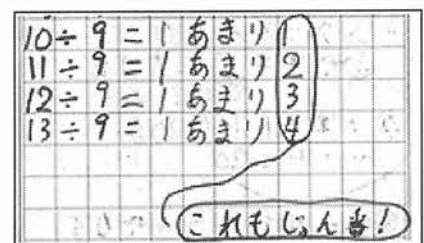 10÷9=1あまり1
11÷9=1あまり2
12÷9=1あまり3
13÷9=1あまり4
これもじゅん番!